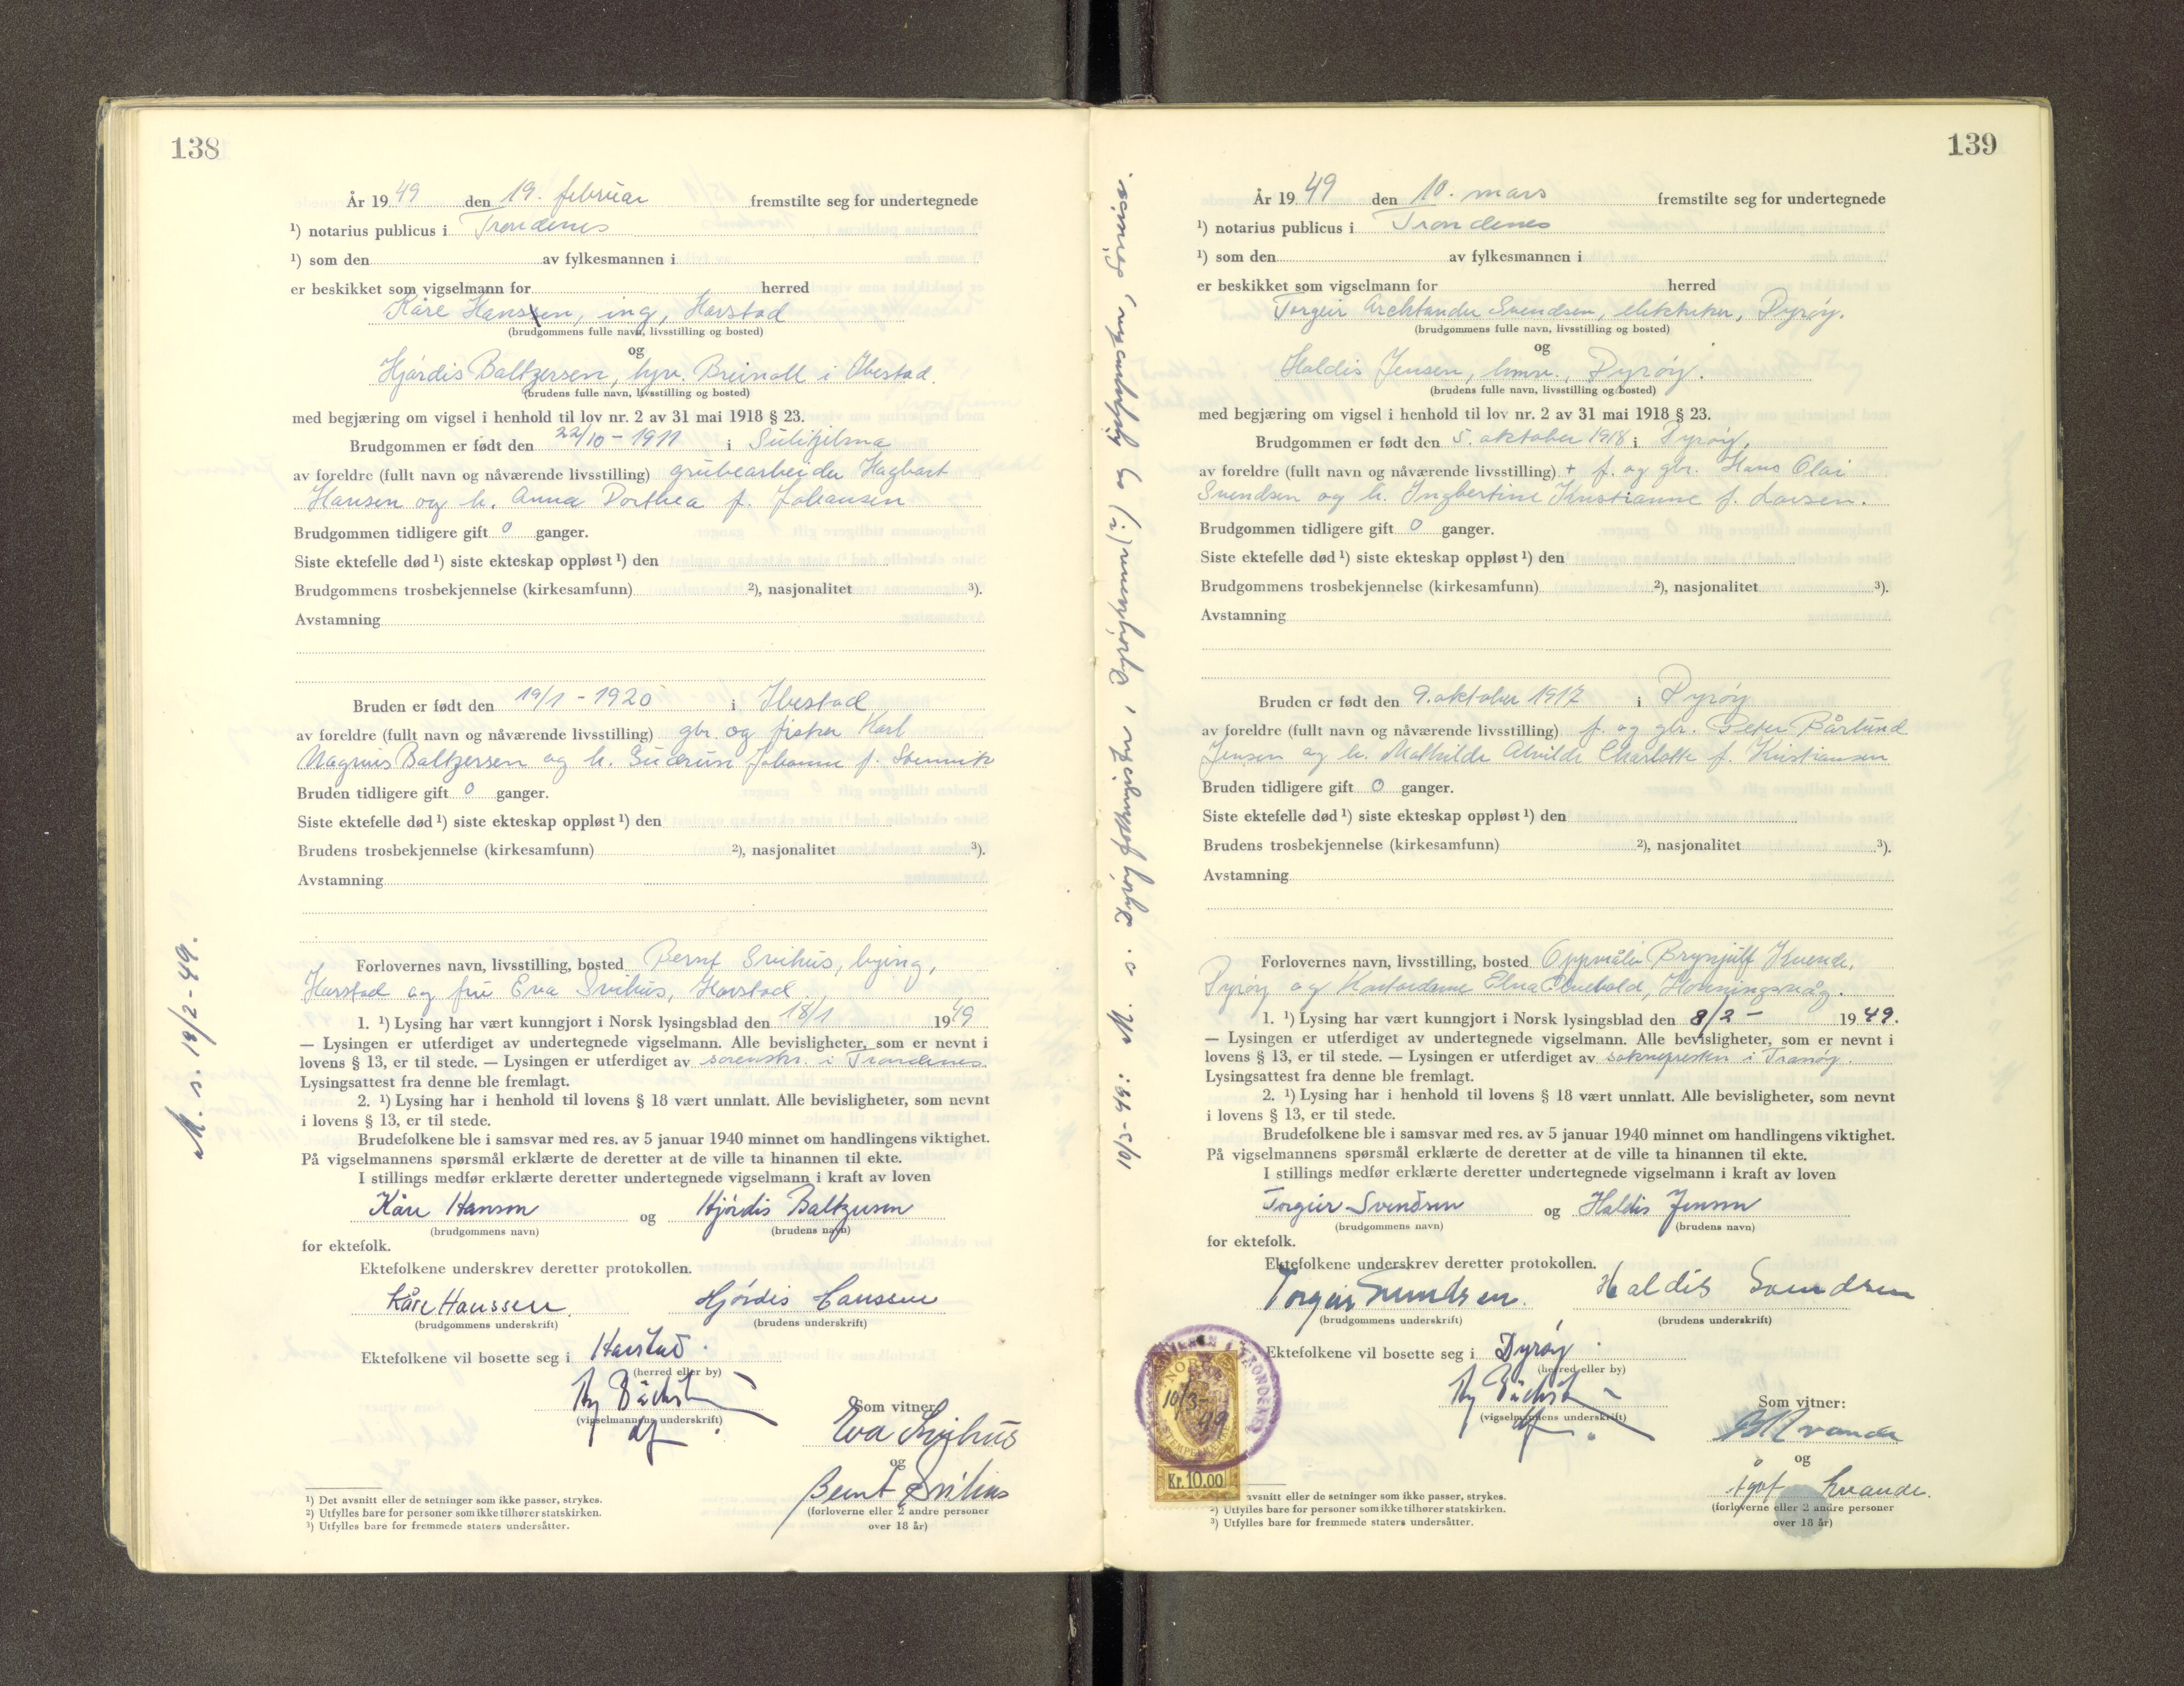 138
År 1949 den 19. februar fremstilte seg for undertegnede
¹) notarius publicus i Trondenes
¹) som den av fylkesmannen i
er beskikket som vigselmann for herred
Kåre Hanssen, ing, Harstad
(brudgommens fulle navn, livsstilling og bosted)
og
Hjørdis Baltzersen, hjv. Breivoll i Ibestad.
(brudens fulle navn, livsstilling og bosted)
med begjæring om vigsel i henhold til lov nr. 2 av 31 mai 1918 § 23.
Brudgommen er født den 22/10 - 1911 i Sulitjelma
av foreldre (fullt navn og nåværende livsstilling) grubearbeider Hagbart
Hansen og h. Anna Dorthea f. Johansen
Brudgommen tidligere gift 0 ganger.
Siste ektefelle død ¹) siste ekteskap oppløst ¹) den
Brudgommens trosbekjennelse (kirkesamfunn) ²), nasjonalitet ³).
Avstamning
Bruden er født den 19/1 - 1920 i Ibestad
av foreldre (fullt navn og nåværende livsstilling) gbr. og fisker Karl
Magnus Baltzersen og h. Gudrun Johanne f.
Bruden tidligere gift 0 ganger.
Siste ektefelle død ¹) siste ekteskap oppløst ¹) den
Brudens trosbekjennelse (kirkesamfunn) ²), nasjonalitet ³).
Avstamning
Forlovernes navn, livsstilling, bosted Bernt Svihus, bying,
Harstad og fru Eva Svihus, Harstad
1. ¹) Lysing har vært kunngjort i Norsk lysingsblad den 18/1 1949
— Lysingen er utferdiget av undertegnede vigselmann. Alle bevisligheter, som er nevnt i
lovens § 13, er til stede. — Lysingen er utferdiget av sorenskr. i Trondenes
Lysingsattest fra denne ble fremlagt.
2. ¹) Lysing har i henhold til lovens § 18 vært unnlatt. Alle bevisligheter, som nevnt
i lovens § 13, er til stede.
Brudefolkene ble i samsvar med res. av 5 januar 1940 minnet om handlingens viktighet.
På vigselmannens spørsmål erklærte de deretter at de ville ta hinannen til ekte.
I stillings medfør erklærte deretter undertegnede vigselmann i kraft av loven
Kåre Hansen og Hjørdis Baltzersen
(brudgommens navn) (brudens navn)
for ektefolk.
Ektefolkene underskrev deretter protokollen.
Kåre Hanssen. Hjørdis Hanssen
(brudgommens underskrift) (brudens underskrift)
Ektefolkene vil bosette seg i Harstad.
(herred eller by)
(vigselmannens underskrift)
Som vitner:
Eva Svihus
og
Bernt Svihus
(forloverne eller 2 andre personer
over 18 år)
¹) Det avsnitt eller de setninger som ikke passer, strykes.
²) Utfylles bare for personer som ikke tilhører statskirken.
³) Utfylles bare for fremmede staters undersåtter.
19/2-49.
139
År 1949 den 10. mars fremstilte seg for undertegnede
¹) notarius publicus i Trondenes
¹) som den av fylkesmannen i
er beskikket som vigselmann for herred
Torgeir Svendsen, elektriker, Dyrøy.
(brudgommens fulle navn, livsstilling og bosted)
og
Haldis Jensen, hmv., Dyrøy.
(brudens fulle navn, livsstilling og bosted)
med begjæring om vigsel i henhold til lov nr. 2 av 31 mai 1918 § 23.
Brudgommen er født den 5. oktober 1918 i Dyrøy.
av foreldre (fullt navn og nåværende livsstilling) + f. og gbr. Hans Olai
Svendsen og h. Ingbertine Kristianne f. Larsen.
Brudgommen tidligere gift 0 ganger.
Siste ektefelle død ¹) siste ekteskap oppløst ¹) den
Brudgommens trosbekjennelse (kirkesamfunn) ²), nasjonalitet ³).
Avstamning
Bruden er født den 9. oktober 1917 i Dyrøy
av foreldre (fullt navn og nåværende livsstilling) f. og gbr. Peter Bårlund
Jensen og h. Mathilde Alvilde Charlotte f. Kristiansen
Bruden tidligere gift 0 ganger.
Siste ektefelle død ¹) siste ekteskap oppløst ¹) den
Brudens trosbekjennelse (kirkesamfunn) ²), nasjonalitet ³).
Avstamning
Forlovernes navn, livsstilling, bosted Oppmåler Brynjulf Kvende,
Dyrøy og Kontordame Elna, Honningsvåg.
1. ¹) Lysing har vært kunngjort i Norsk lysingsblad den 8/2 - 1949.
— Lysingen er utferdiget av undertegnede vigselmann. Alle bevisligheter, som er nevnt i
lovens § 13, er til stede. — Lysingen er utferdiget av soknepresten i Tranøy.
Lysingsattest fra denne ble fremlagt.
2. ¹) Lysing har i henhold til lovens § 18 vært unnlatt. Alle bevisligheter, som nevnt
i lovens § 13, er til stede.
Brudefolkene ble i samsvar med res. av 5 januar 1940 minnet om handlingens viktighet.
På vigselmannens spørsmål erklærte de deretter at de ville ta hinannen til ekte.
I stillings medfør erklærte deretter undertegnede vigselmann i kraft av loven
Torgeir Svendsen og Haldis Jensen
(brudgommens navn) (brudens navn)
for ektefolk.
Ektefolkene underskrev deretter protokollen.
Torgeir Svendsen. Haldis Svendsen
(brudgommens underskrift) (brudens underskrift)
Ektefolkene vil bosette seg i Dyrøy.
(herred eller by)
(vigselmannens underskrift)
Som vitner:
og
Kvande.
(forloverne eller 2 andre personer
over 18 år)
NORGE
10/3-49
STEMPELMERKE
Kr. 10.00
avsnitt eller de setninger som ikke passer, strykes.
²) Utfylles bare for personer som ikke tilhører statskirken.
³) Utfylles bare for fremmede staters undersåtter.
10/3-49: